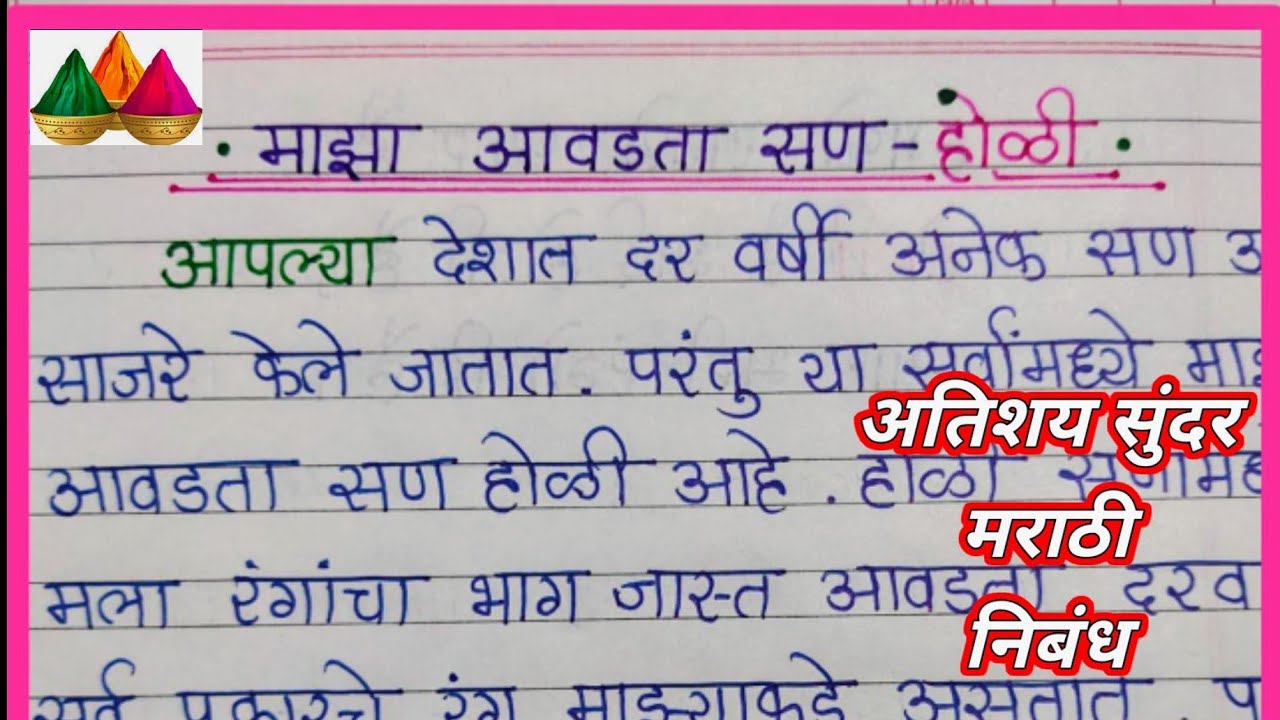 माझा आवडता सण - होळी
आपल्या देशात दर वर्षी अनेक सण
साजरे केले जातात. परंतु या सर्वांमध्ये
आवडता सण होळी आहे. होळी
मला रंगांचा भाग जास्त आवडतो
सर्व प्रकारचे रंग माझ्याकडे असतात.
अतिशय सुंदर
मराठी
निबंध